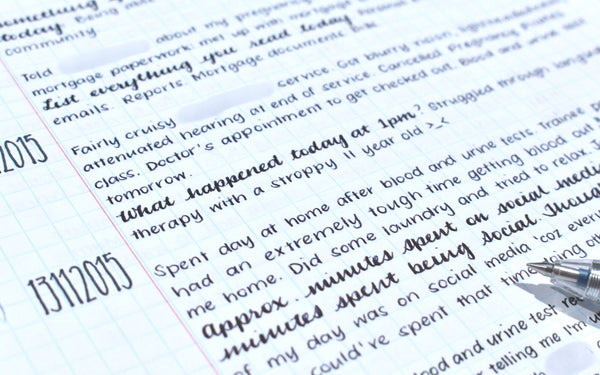 something
today. Being
community
Told about my pregnancy.
mortgage paperwork. met up with mortgage
List everything you read today. Personal
emails. Reports. Mortgage documents.
Fairly cruisy service. Got blurry vision, lightheadedness
attenuated hearing at end of service. Cancelled Pregnancy Pilates
class. Doctor's appointment to get checked out. Blood and urine
tomorrow.
2015
What happened today at 1pm? Struggled through language
therapy with a stroppy 11 year old >_<
13112015
Spent day at home after blood and urine tests. Trainee
had an extremely tough time getting blood out
me home. Did some laundry and tried to relax.
approx. minutes spent on social media
minutes spent being social. Thought
of my day was on social media 'coz every
could've spent that time being
blood and urine test
telling me I'm